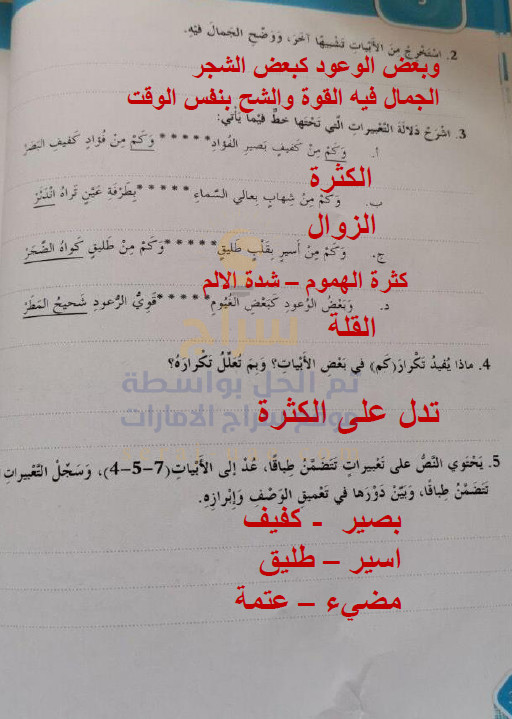 2. اسْتَخْرِجْ مِنَ الْأَبْيَاتِ تَشْبِيهًا آخَرَ، وَوَضِّحِ الْجَمَالَ فِيهِ.
وبعض الوعود كبعض الشجر
الجمال فيه القوة والشح بنفس الوقت
3. اشْرَحْ دَلَالَةَ التَّعْبِيرَاتِ الَّتِي تَحْتَهَا خَطٌّ فِيْمَا يَأْتِي:
أ. وَكَمْ مِنْ كَفِيفٍ بَصِيرِ الفُؤَاد*****وَكَمْ مِنْ فُؤَادٍ كَفِيفِ البَصَرْ
الكثرة
ب. وَكَمْ مِنْ شِهَابٍ بِعَالِي السَّمَاءِ *****بِطَرْفَةِ عَيْنٍ تَرَاهُ انْدَثَرْ
الزوال
ج. وَكَمْ مِنْ أَسِيرٍ بِقَلْبٍ طَلِيقٍ*****وَكَمْ مِنْ طَلِيقٍ كَوَاهُ الضَّجَرْ
كثرة الهموم – شدة الالم
د. وَبَعْضُ الوُعودِ كَبَعْضِ الْغُيُومِ*****قَوِيُّ الرُّعودِ شَحِيحُ المَطَرْ
القلة
سراج
4. مَاذَا يُفِيدُ تَكْرَارُ(كَم) فِي بَعْضِ الْأَبْيَاتِ؟ وَبِمَ تُعَلِّلُ تَكْرَارَهُ؟
تم الحل بواسطة
تدل على الكثرة
موقع سراج الامارات
5. يَحْتَوِي النَّصُّ عَلى تَعْبِيراتٍ تَتَضَمَّنُ طِبَاقًا، عُدْ إِلَى الْأَبْيَاتِ(7–5–4)، وَسَجِّلْ التَّعْبِيرَاتِ
تَتَضَمَّنُ طِبَاقًا، وَبَيِّنْ دَوْرَهَا فِي تَعْمِيقِ الْوَصْفِ وَإِبْرَازِهِ.
بصير - كفيف
اسير – طليق
مضيء – عتمة